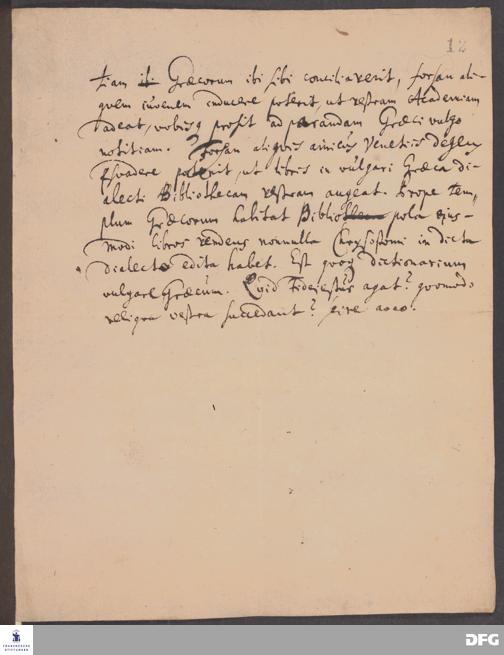 12
tiam ibi Græcorum ibi sibi conciliaverit, forsan ali-
quem iuvenem inducere poterit, ut vestram Academiam
adeat, vobisq prosit ad parandam Græci vulgo
notitiam. Forsan aliquis amicus Venetiis degens
poterit, ut libris in vulgari Græca di-
alecto Bibliothecam vestram augeat. Prope tem-
plum Græcorum habitat Bibliopola ejus-
modi libros vendens nonnulla Chrysostomi in dicta
dialecto edita habet. Est quoq dictionarium
vulgare Græcum. Quid agat? quomodo
reliqua vestra succedant? scire aveo.
FRANCKESCHE
STIFTUNGEN
DFG